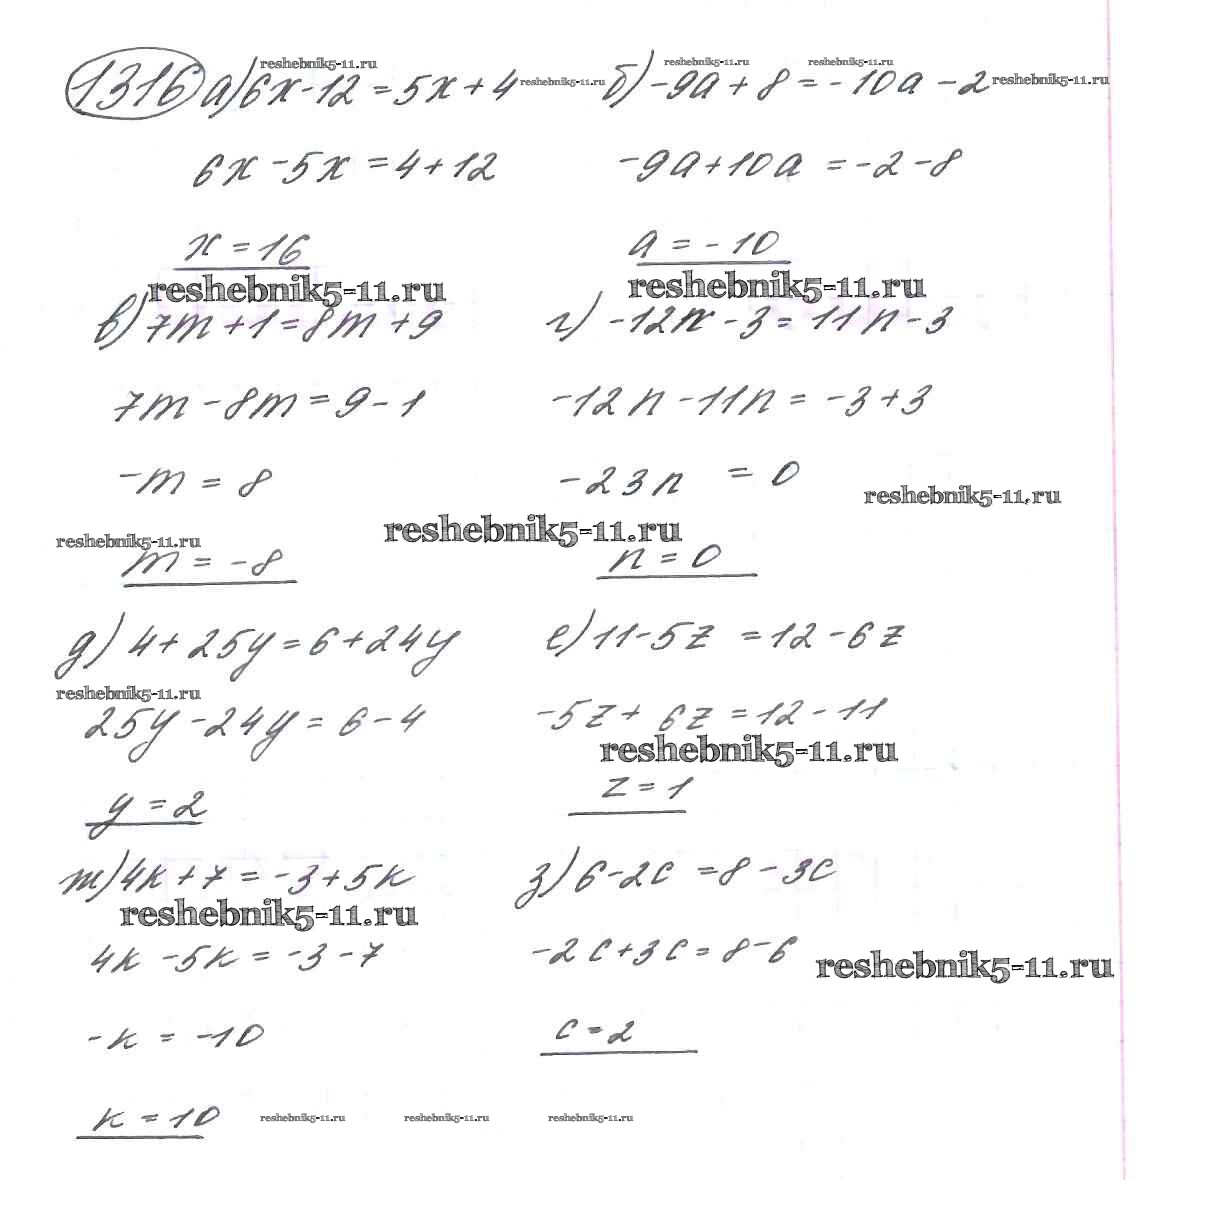 reshebnik5-11.ru reshebnik5-11.ru reshebnik5-11.ru
1316 а) 6x - 12 = 5x + 4 reshebnik5-11.ru б) -9a + 8 = -10a - 2 reshebnik5-11.ru
6x - 5x = 4 + 12 -9a + 10a = -2 - 8
x = 16 a = -10
reshebnik5-11.ru reshebnik5-11.ru
в) 7m + 1 = 8m + 9 г) -12n - 3 = 11n - 3
7m - 8m = 9 - 1 -12n - 11n = -3 + 3
-m = 8 -23n = 0 reshebnik5-11.ru
reshebnik5-11.ru reshebnik5-11.ru
m = -8 n = 0
д) 4 + 25y = 6 + 24y е) 11 - 5z = 12 - 6z
reshebnik5-11.ru
25y - 24y = 6 - 4 -5z + 6z = 12 - 11
reshebnik5-11.ru
y = 2 z = 1
ж) 4k + 7 = -3 + 5k з) 6 - 2c = 8 - 3c
reshebnik5-11.ru
4k - 5k = -3 - 7 -2c + 3c = 8 - 6 reshebnik5-11.ru
-k = -10 c = 2
k = 10 reshebnik5-11.ru reshebnik5-11.ru reshebnik5-11.ru